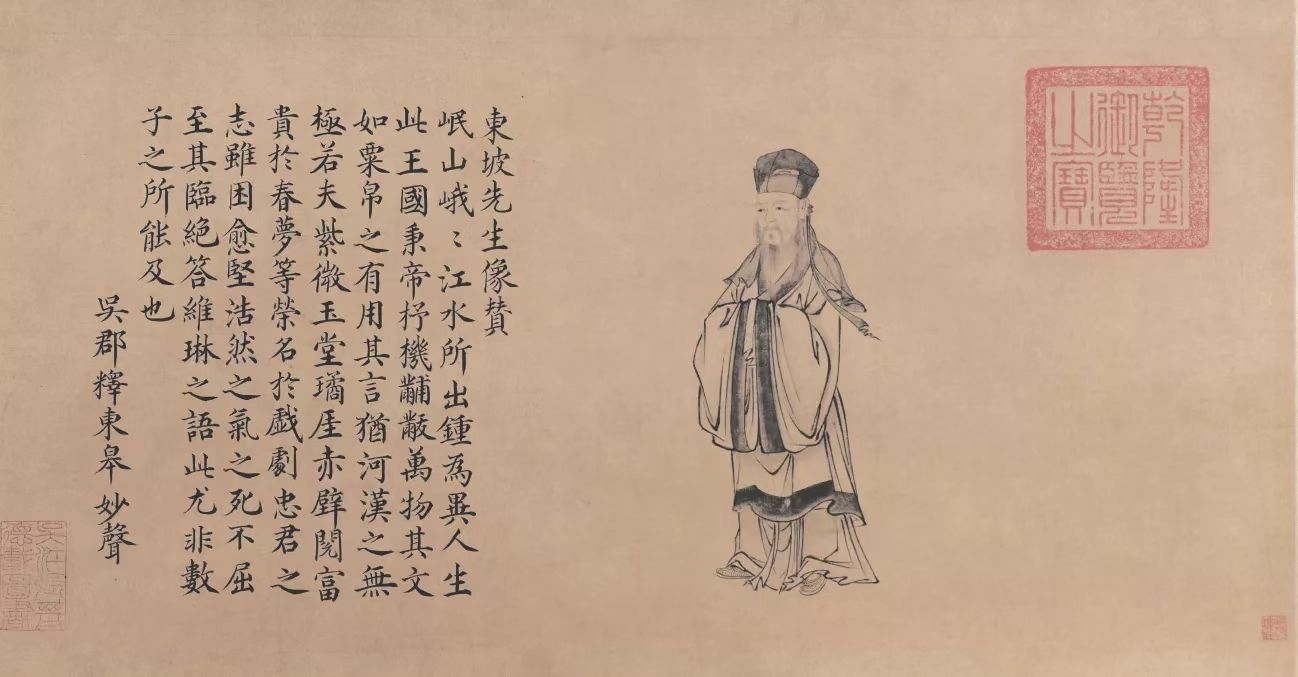 乾隆
御覽
之寶
東坡先生像賛
岷山峨〻江水所出鍾為異人生
此王國秉帝杼機黼黻萬物其文
如粟帛之有用其言猶河漢之無
極若夫紫微玉堂璚厓赤壁閱富
貴於春夢等榮名於戱劇忠君之
志雖困愈堅浩然之氣之死不屈
至其臨絕答維琳之語此尤非數
子之所能及也
吳郡釋東皋妙聲